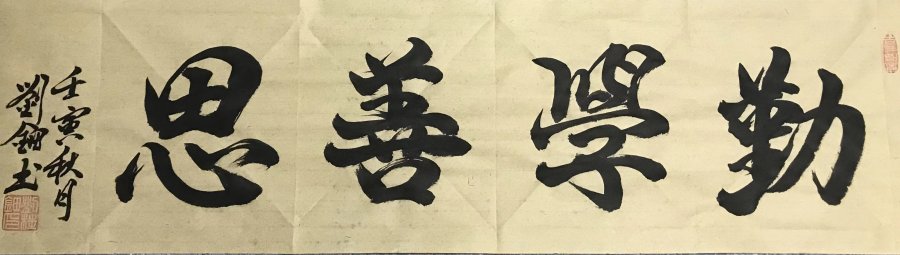 勤學善思
壬寅秋月
劉鈿书